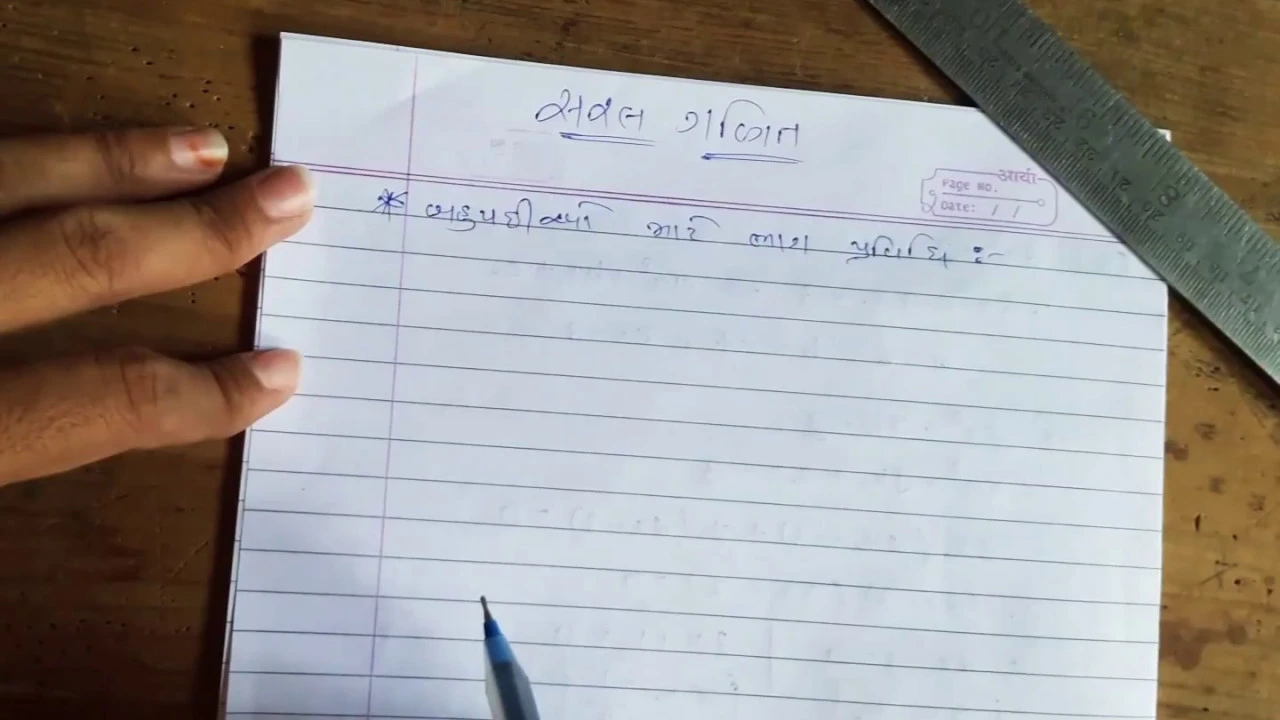 સવલ ગણિત
आर्या
Page No.
Date: / /
* બહુપદીઓ માટે ભાગ પ્રવિધિ :-